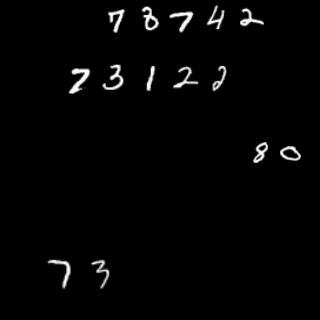 78742
23122
80
73